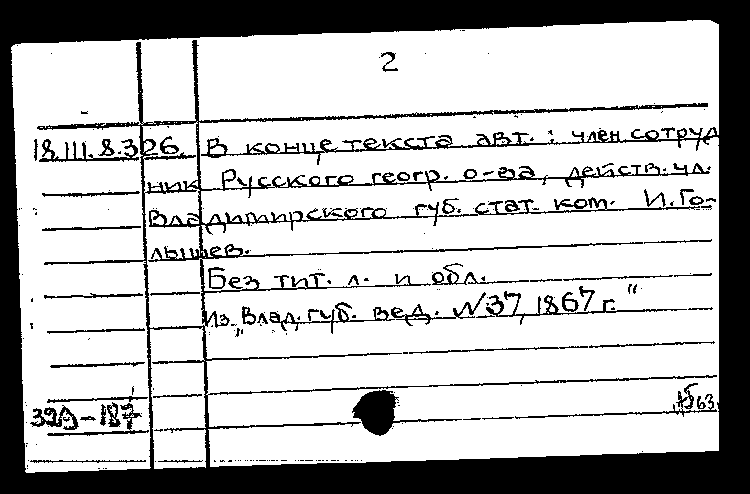 2
18.III.8.326. В конце текста авт.: член сотруд
ник Русского геогр. о-ва, действ. чл.
Владимирского губ. стат. ком. И. Го-
лышев.
Без тит. л. и обл.
Из „Влад. губ. вед. № 37, 1867 г."
329-187